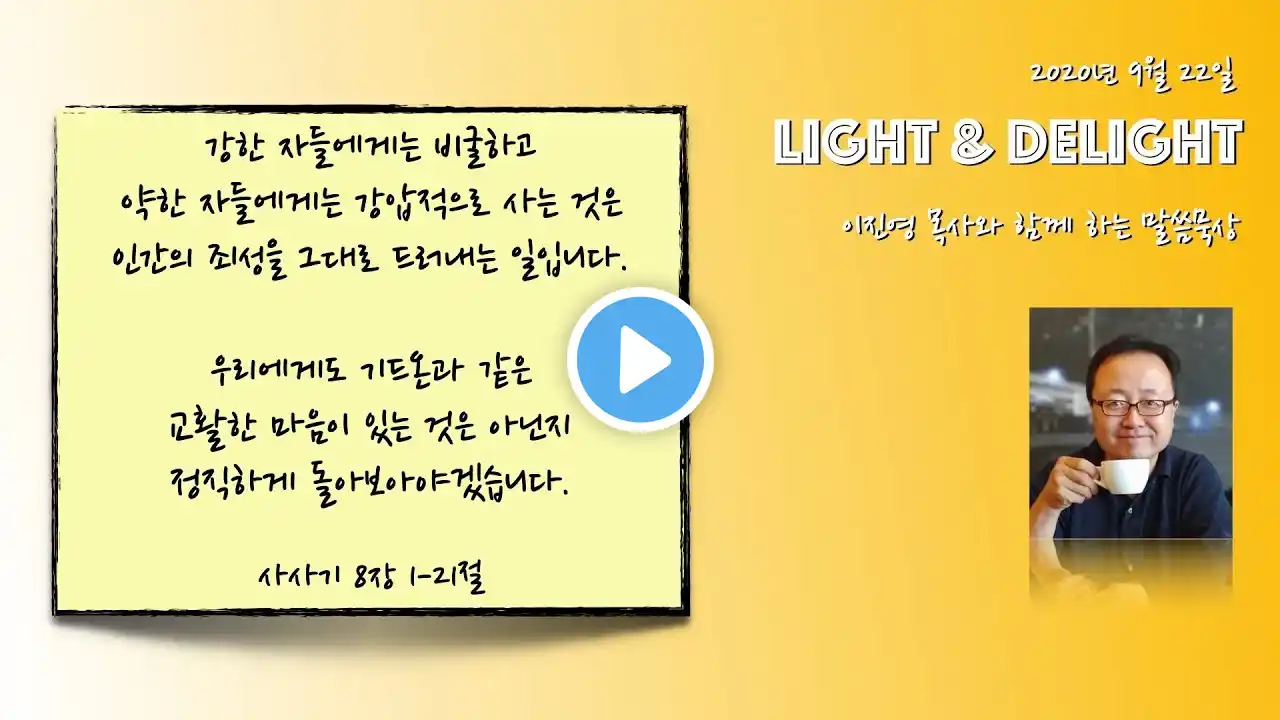 강한 자들에게는 비굴하고
약한 자들에게는 강압적으로 사는 것은
인간의 죄성을 그대로 드러내는 일입니다.
우리에게도 기드온과 같은
교활한 마음이 있는 것은 아닌지
정직하게 돌아보아야겠습니다.
사사기 8장 1-21절
2020년 9월 22일
LIGHT & DELIGHT
이진영 목사와 함께 하는 말씀묵상